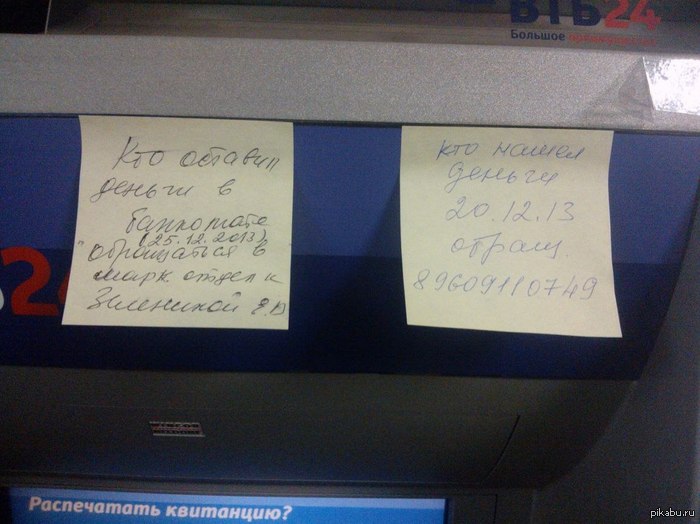 ВТБ24
Большое преимущество
Кто оставил
деньги в
банкомате
(25.12.2013)
обращаться в
марк отдел к
Зелениной
кто нашел
деньги
20.12.13
обращ.
89609110749
24
Распечатать квитанцию?
pikabu.ru